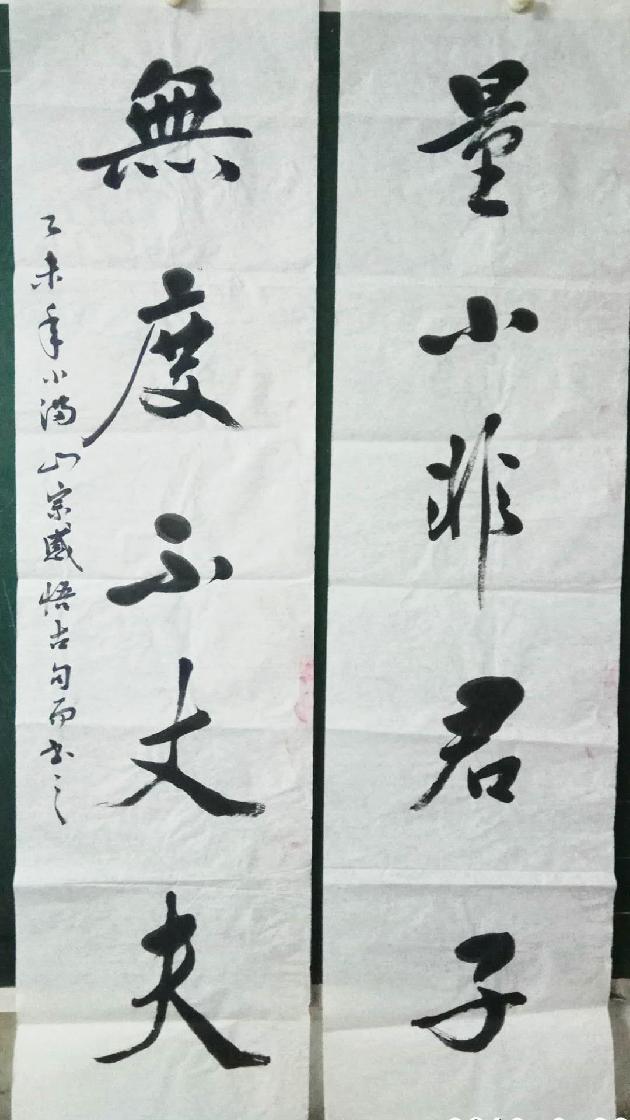 量小非君子
無度不丈夫
乙未年小滿山宗感悟古句而书之